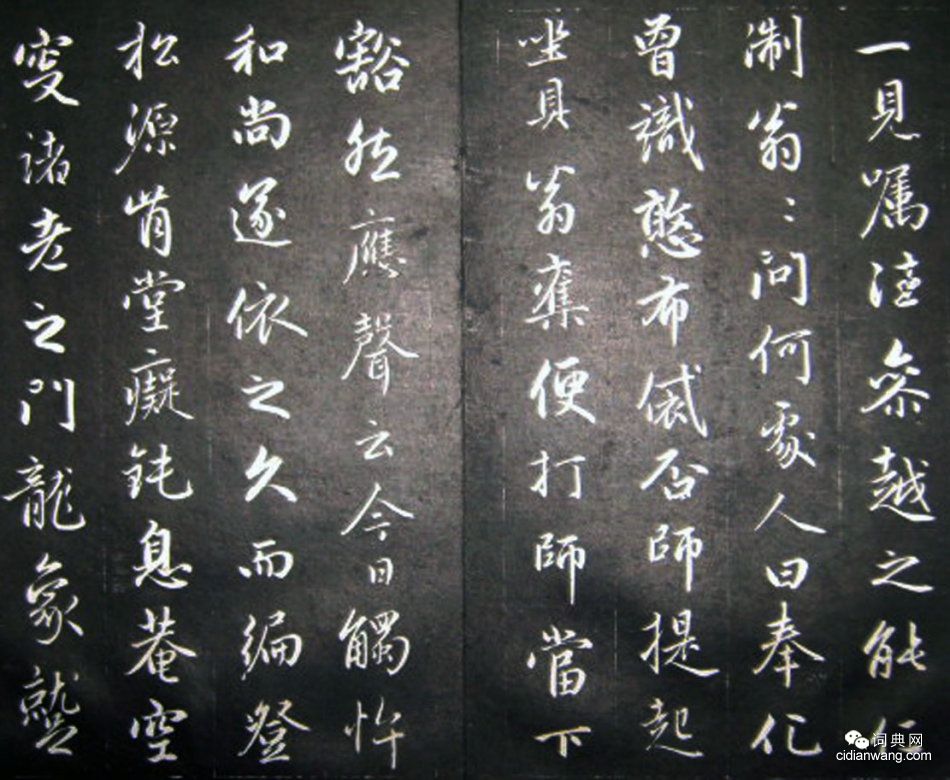 一見囑往叅越之能仁
淛翁〻問何處人曰奉化
曾識憨布袋否師提起
坐具翁奪便打師當下
豁然應聲云今日觸忤
和尚遂依之久而徧登
松源肯堂癡鈍息菴空
叟諸老之門龍象蹴
词典网
cidianwang.com